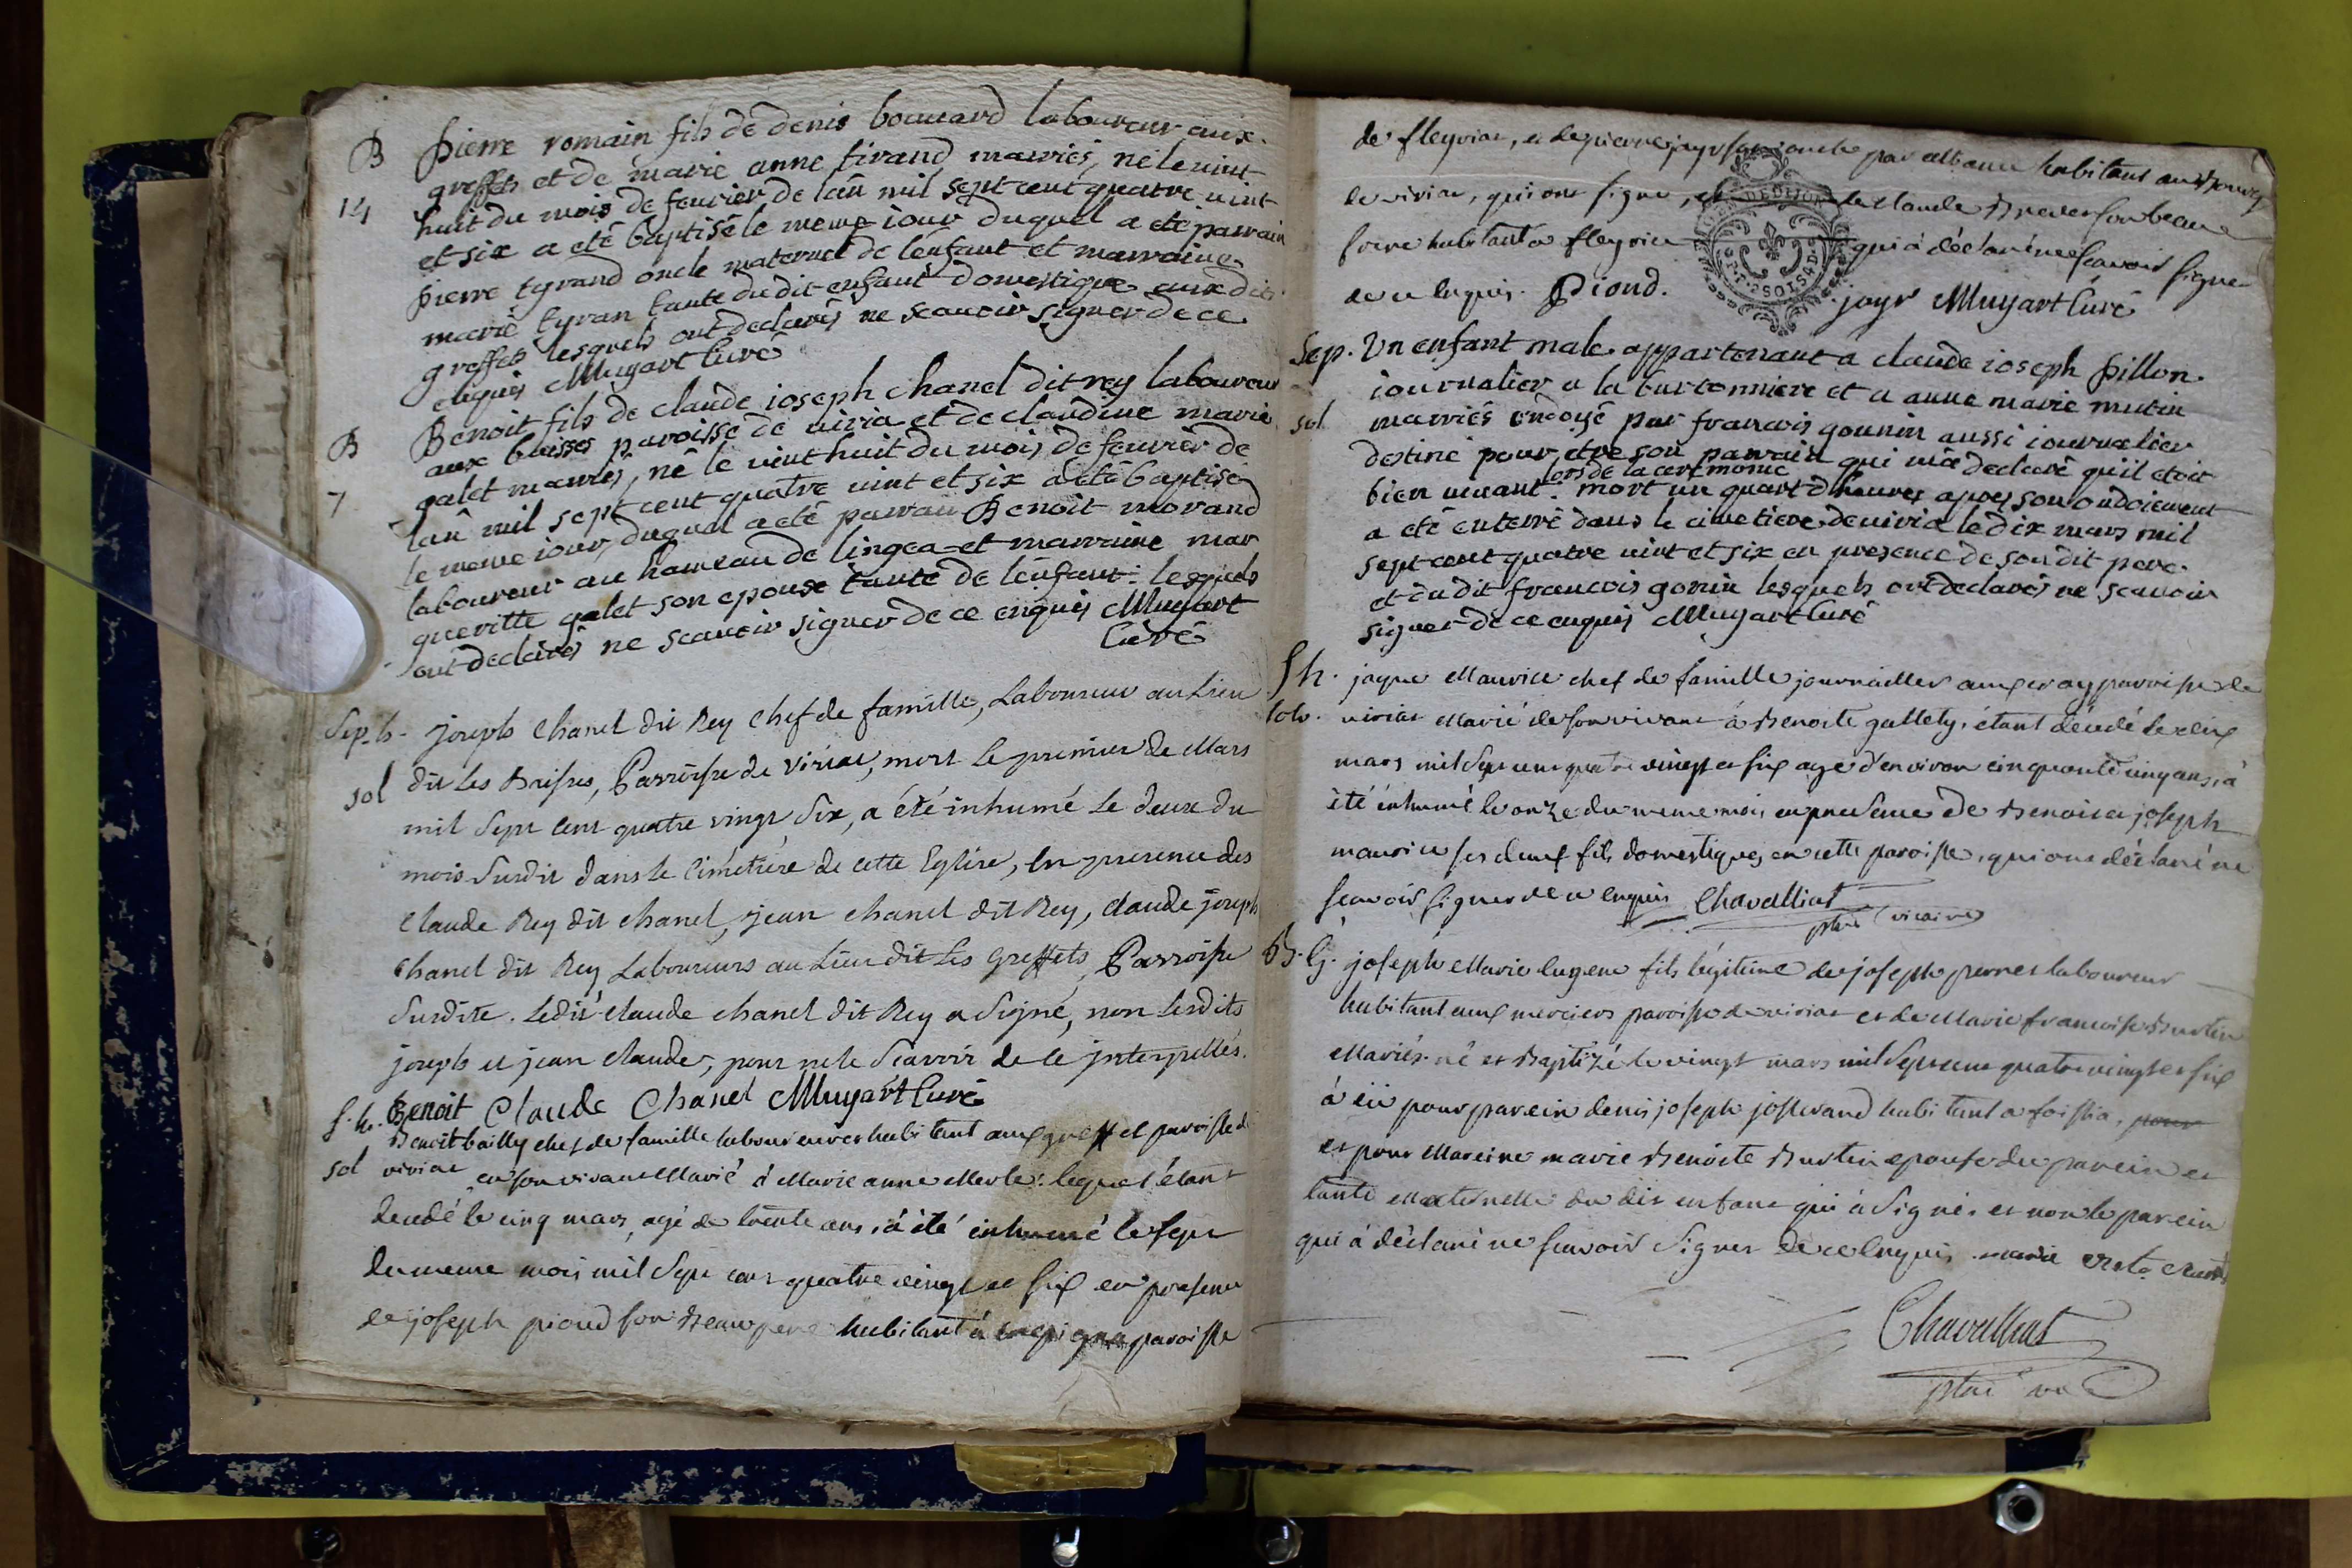 B Pierre romain fils de denis bouuard laboureur aux
greffets et de marie anne tirand mariés, né le uint
14 huit du mois de feurier de lan mil sept cent quatre uint
et six a eté baptisé le meme iour duquel a eté parrain
pierre tyrand oncle maternel de lenfant et marraine
marie tyran tante du dit enfant domestique aux dits
greffets lesquels ont declarés ne scauoir signer de ce
enquis Muyart Curé
B Benoit fils de claude ioseph chanel dit rey laboureur
aux baisses paroisse de uiria et de claudine marie
7 galet mariés, né le uint huit du mois de feurier de
lan mil sept cent quatre uint et six a eté baptisé
le meme iour, duquel a eté parrain Benoit morand
laboureur au hameau de lingea et marraine mar
gueritte galet son epouse tante de lenfant: lesquels
ont declarés ne scauoir signer de ce enquis Muyart
Curé
Sep. h. joseph Chanel dit Rey Chef de famille, Laboureur au Lieu
sol dit Les Baisses, Parroisse de Viriat, mort le premier de Mars
mil Sept Cent quatre vingt Six, a été inhumé Le deux du
mois Susdit dans le Cimétiére de cette Eglise, en presence des
Claude Rey dit chanel, jean chanel dit Rey, claude joseph
Chanel dit Rey Laboureurs au Lieu dit Les Greffets, Parroisse
Susdite. Ledit Claude chanel dit Rey a Signé, non Lesdits
joseph et jean Claude, pour ne le Scavoir de ce jnterpellés.
Benoit Claude Chanel Muyart Curé
S. h. Benoit bailly chef de famille laboureur et habitant aux greffet paroisse de
sol viriat en son vivant Marié à Marie anne Merle: lequel étant
decedé le cinq mars, agé de trente ans, à été inhumé le sept
du meme mois mil Sept cent quatre vingt et six en presence
de joseph pioud son Beaupere habitant à paroisse
de fleyriat, et de pierre jayr son oncle par alliance habitant au
de viriat, qui ont signé, et de Claude Brevet son beau
frere habitant a fleyriat qui à déclaré ne scavoir signer
de ce enquis. Pioud. jayr Muyart Curé
Sep. Un enfant male appartenant a claude ioseph pillon
iournalier a la burtonniere et a anne marie mutin
sol mariés ondoyé par francois gounin aussi iournalier
destiné pour etre son parrain qui m'a declaré qu'il etoit
lors de la ceremonie
bien uiuant. mort un quart d'heures apres son ondoiement
a eté enterré dans le cimetiere de uiria le dix mars mil
sept cent quatre uint et six en presence de son dit pere
et du dit francois gonin lesquels ont declarés ne scauoir
signer de ce enquis Muyart Curé
S h. jaque Maurice chef de famille journallier aux paroisse de
solv. viriat Marié de son vivant à Benoite gallety, étant décédé le dix
mars mil Sept cent quatre vingt et six agé d'environ cinquante cinq ans, à
été inhumé le onze du meme mois en presence de Benoit et joseph
maurice ses deux fils domestiques en cette paroisse, qui ont déclaré ne
scavoir signer de ce enquis Chavalliat
ptre vicaire
B. G. joseph Marie Eugene fils légitime de joseph perret laboureur
habitant aux merciers paroisse de viriat et de Marie francoise Burtin
Mariés né et Baptizé le vingt mars mil Sept cent quatre vingt et six
à eü pour parein denis joseph josserand habitant a foissia, pour
et pour Mareine marie Benoite Burtin epouse du parein et
tante Maternelle du dit enfant qui à Signé, et non le parein
qui à déclaré ne scavoir Signer de ce Enquis. marie
Chavalliat
ptre vic